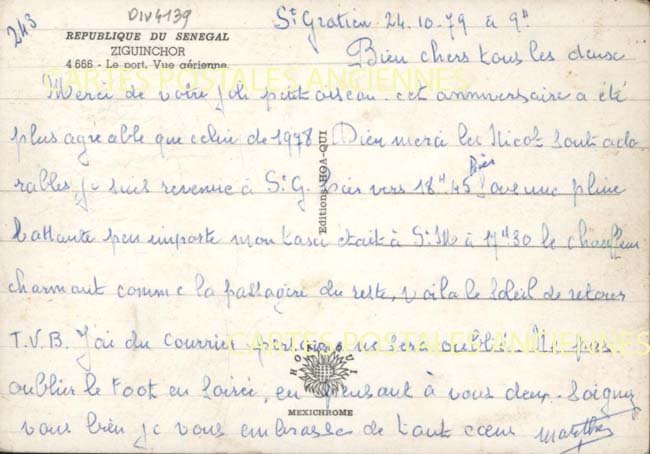 DIV4139
243
REPUBLIQUE DU SENEGAL
ZIGUINCHOR
4 666 - Le port. Vue aérienne.
St Gratien 24.10.79 à 9H
Bien chers tous les deux
CARTES POSTALES ANCIENNES
Merci de votre joli petit oiseau. cet anniversaire a été
plus agréable que celui de 1978 Dieu merci les Nicot sont ado
rables, je suis revenue à St G. hier vers 18H45 sous une pluie
battante peu importe mon taxi était à St M à 17H30 le chauffeur
charmant comme la passagère du reste, voila le soleil de retour
T.V.B. J'ai du courrier ne sera oublié. Ne pas
CARTES POSTALES ANCIENNES
oublier le foot en soirée, en pensant à vous deux. Soignez
vous bien je vous embrasse de tout cœur
Editions HOA-QUI
HOA QUI
MEXICHROME